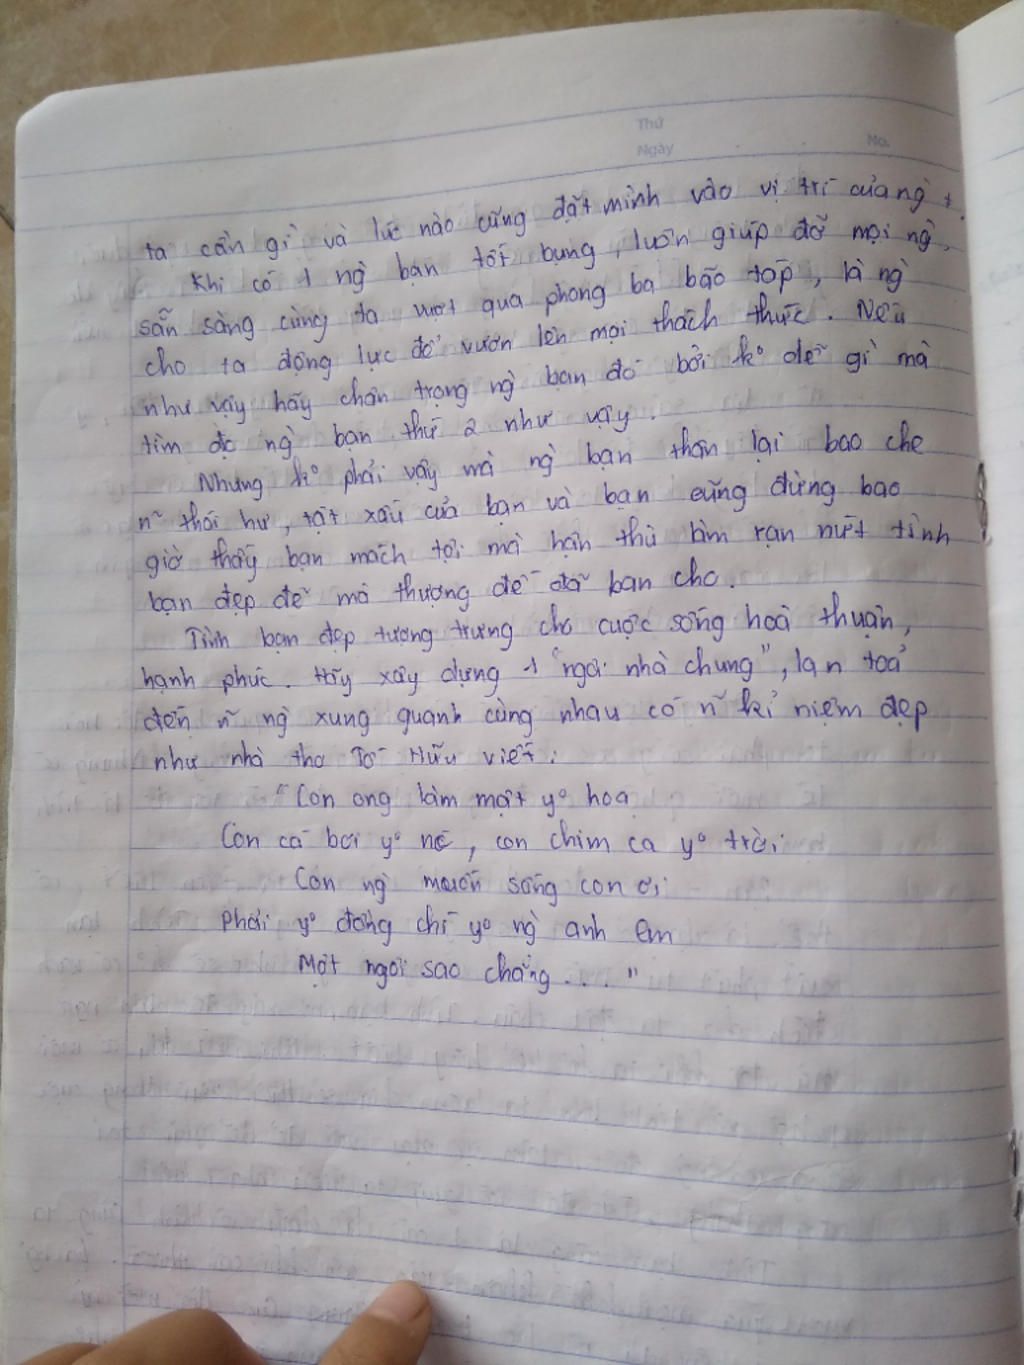 Thứ
Ngày
No.
ta cần gì và lúc nào cũng đặt mình vào vị trí của ng` t.
Khi có 1 ng` bạn tốt bụng, luôn giúp đỡ mọi ng`,
sẵn sàng cùng ta vượt qua phong ba bão táp, là ng`
cho ta động lực để vươn lên mọi thách thức. Nếu
như vậy hãy chân trọng ng` bạn đó bởi k° dễ gì mà
tìm đc ng` bạn thứ 2 như vậy.
Nhưng k° phải vậy mà ng` bạn thân lại bao che
n~ thói hư, tật xấu của bạn và bạn cũng đừng bao
giờ thấy bạn mách tội mà hận thù làm rạn nứt tình
bạn đẹp đẽ mà thượng đế đã ban cho.
Tình bạn đẹp tượng trưng cho cuộc sống hoà thuận,
hạnh phúc. Hãy xây dựng 1 "ngôi nhà chung", lan toả
đến n~ ng` xung quanh cùng nhau có n~ kỉ niệm đẹp
như nhà thơ Tố Hữu viết:
"Con ong làm mật y° hoa
Con cá bơi y° nc, con chim ca y° trời
Con ng` muốn sống con ơi
Phải y° đồng chí y° ng` anh em
Một ngôi sao chẳng... "